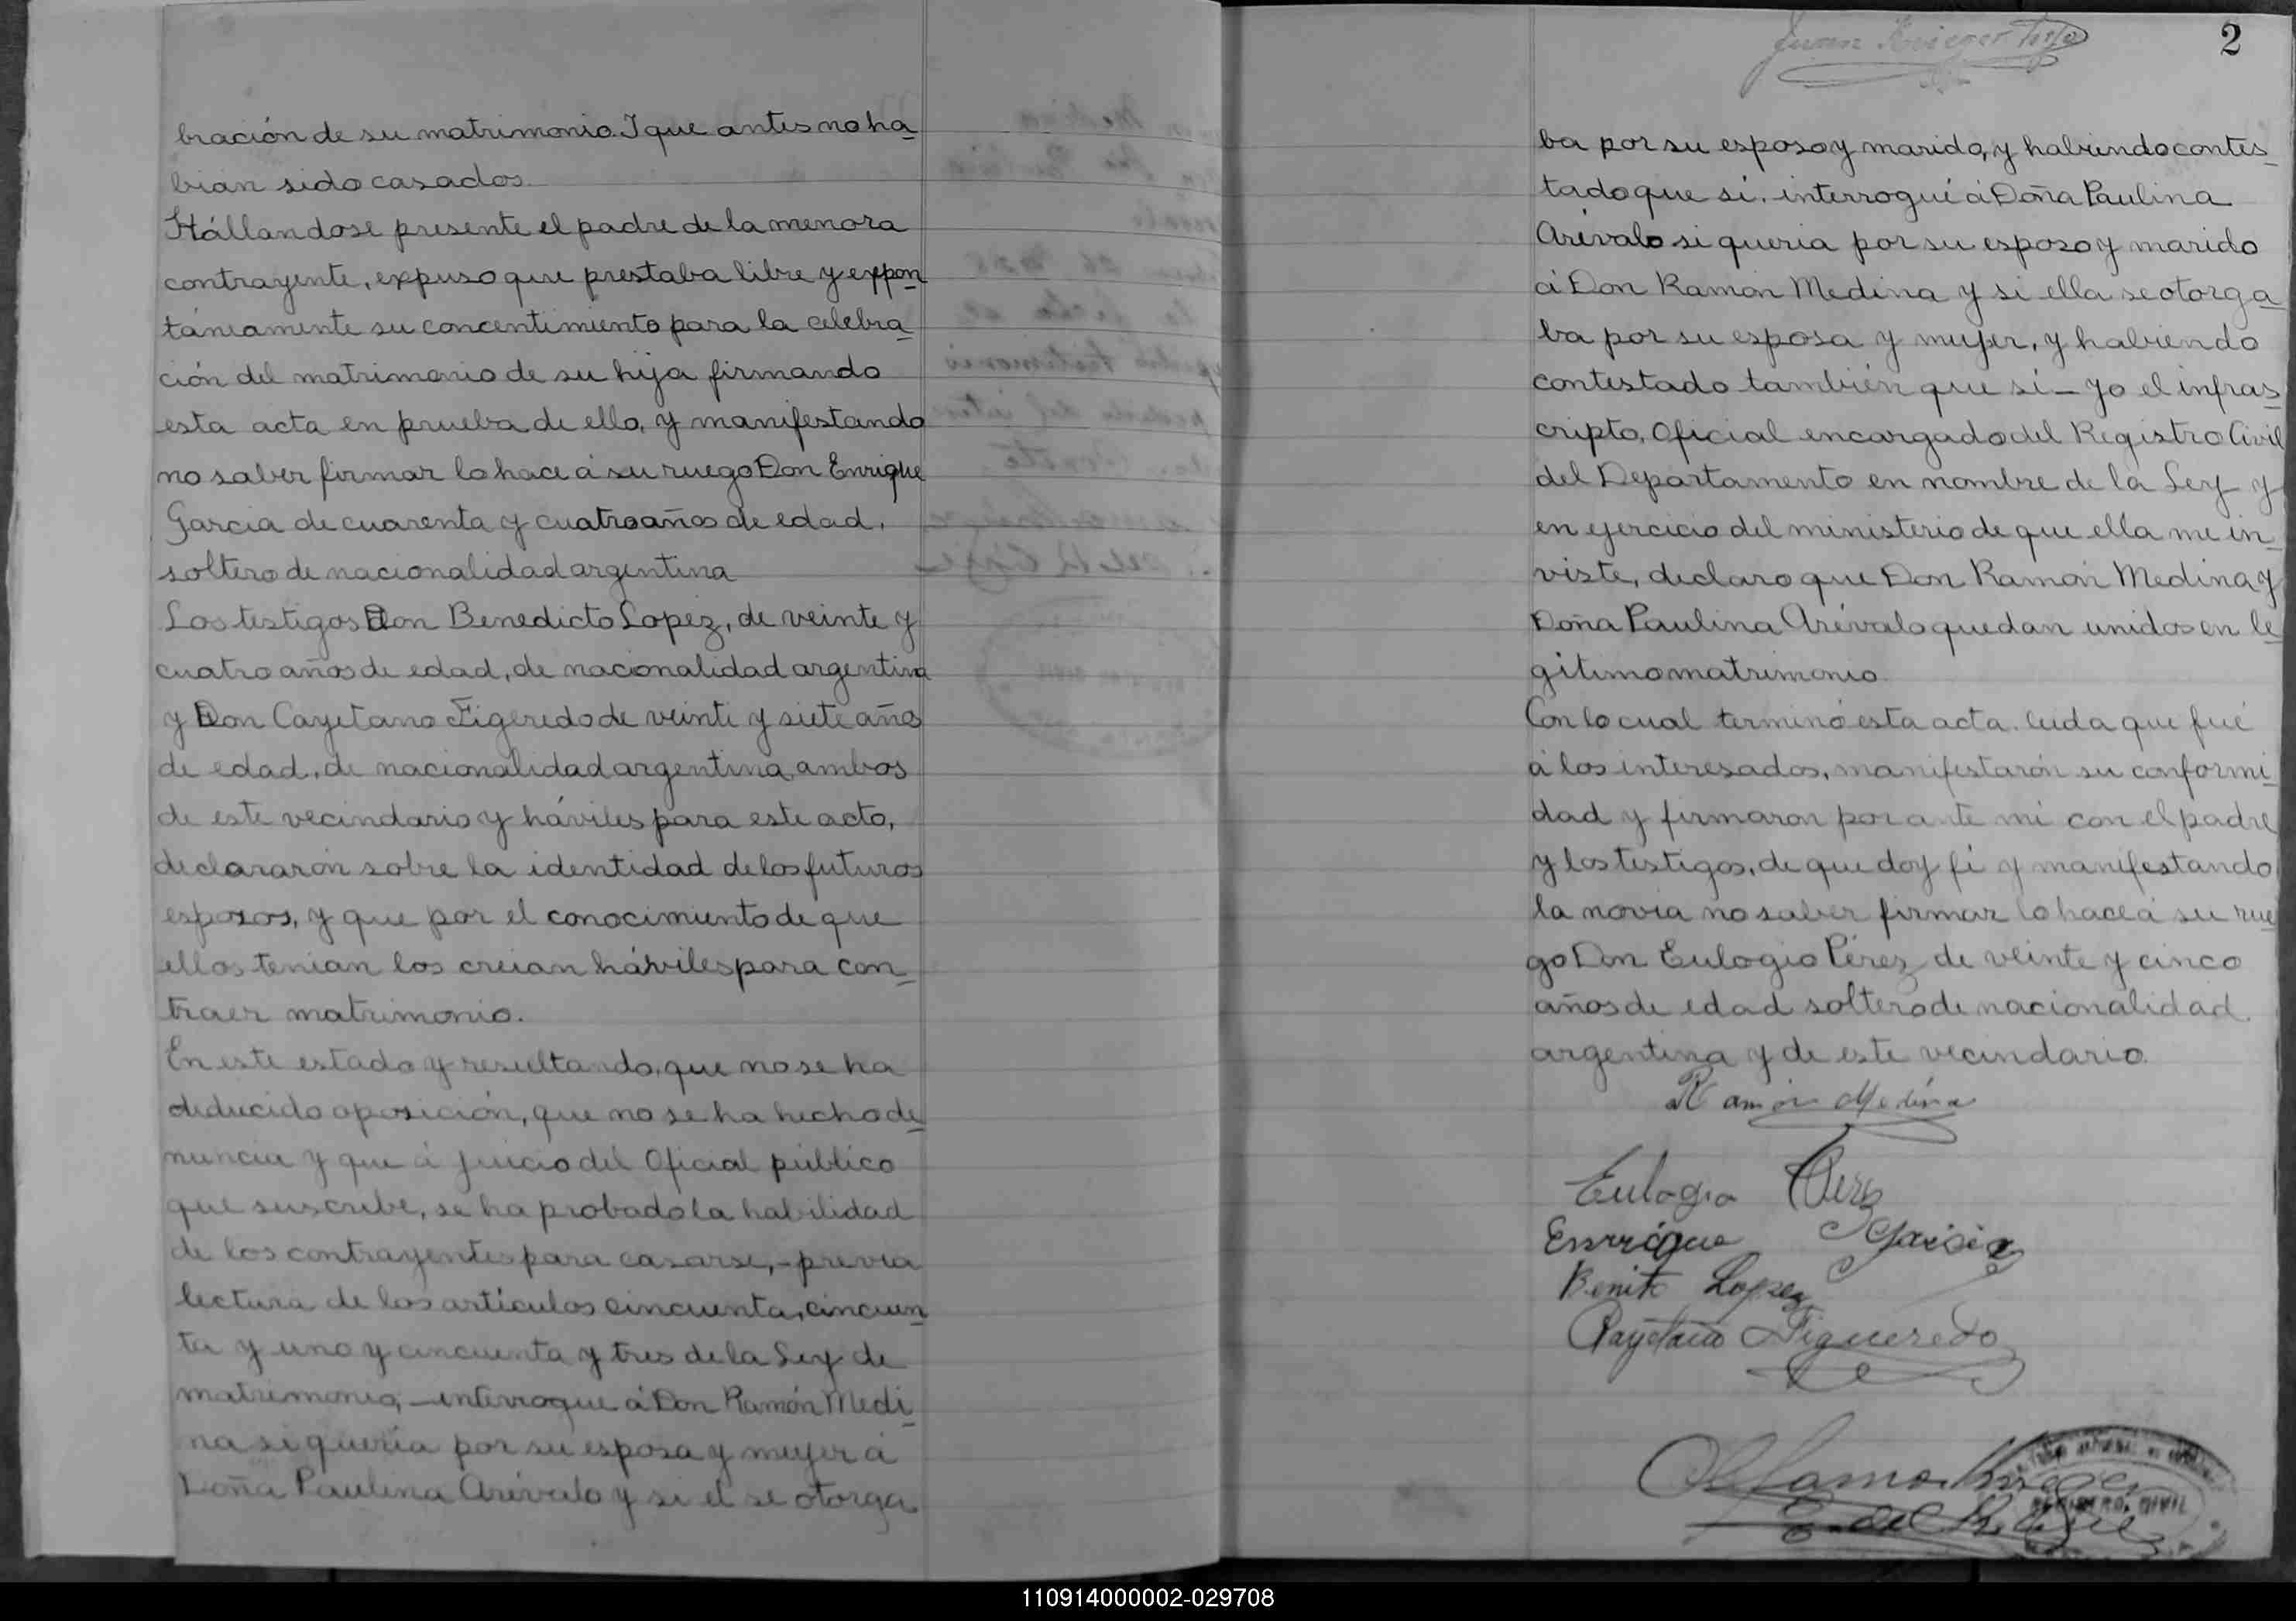 bración de su matrimonio. I que antes no ha
bian sido casados.
Hállandose presente el padre de la menora
contrayente, expuso que prestaba libre y expon
táneamente su concentimiento para la celebra
ción del matrimonio de su hija firmando
esta acta en prueba de ello, y manifestando
no saber firmar lo hace á su ruego Don Enrique
Garcia de cuarenta y cuatro años de edad,
soltero de nacionalidad argentina
Los testigos Don Benedicto Lopez, de veinte y
cuatro años de edad, de nacionalidad argentina
y Don Cayetano Figeredo de veinte y siete años
de edad, de nacionalidad argentina, ambos
de este vecindario y háviles para este acto,
declararón sobre la identidad de los futuros
esposos, y que por el conocimiento de que
ellos tenian los creian háviles para con
traer matrimonio.
En este estado y resultando, que no se ha
deducido oposición, que no se ha hecho de
nuncia y que á juicio del Oficial público
que suscribe, se ha probado la habilidad
de los contrayentes para casarse,- previa
lectura de los artículos cincuenta, cincuen
ta y uno y cincuenta y tres de la Ley de
matrimonio,- interroque á Don Ramón Medi
na si quería por su esposa y mujer á
Doña Paulina Arévalo y si él se otorga
2
Juan Krieger
ba por su esposo y marido, y habiendo contes
tado que sí. interrogué á Doña Paulina
Arévalo si queria por su esposo y marido
á Don Ramón Medina y si ella se otorga
ba por su esposa y mujer, y habiendo
contestado también que sí - yo el infras
cripto, Oficial encargado del Registro Civil
del Departamento en nombre de la Ley y
en ejercicio del ministerio de que ella me in
viste, declaro que Don Ramón Medina y
Doña Paulina Arévalo quedan unidos en le
gítimo matrimonio.
Con lo cual terminó esta acta. leida que fué
á los interesados, manifestarón su conformi
dad y firmaron por ante mí con el padre
y los testigos, de que doy fé y manifestando
la novia no saber firmar lo hace á su rue
go Don Eulogio Pérez de veinte y cinco
años de edad soltero de nacionalidad
argentina y de este vecindario.
Ramón Medina
Eulogio Perez
Enrrique Garcia
Benito Lopez
Cayetano Figueredo
Krieger
REGISTRO CIVIL
110914000002-029708